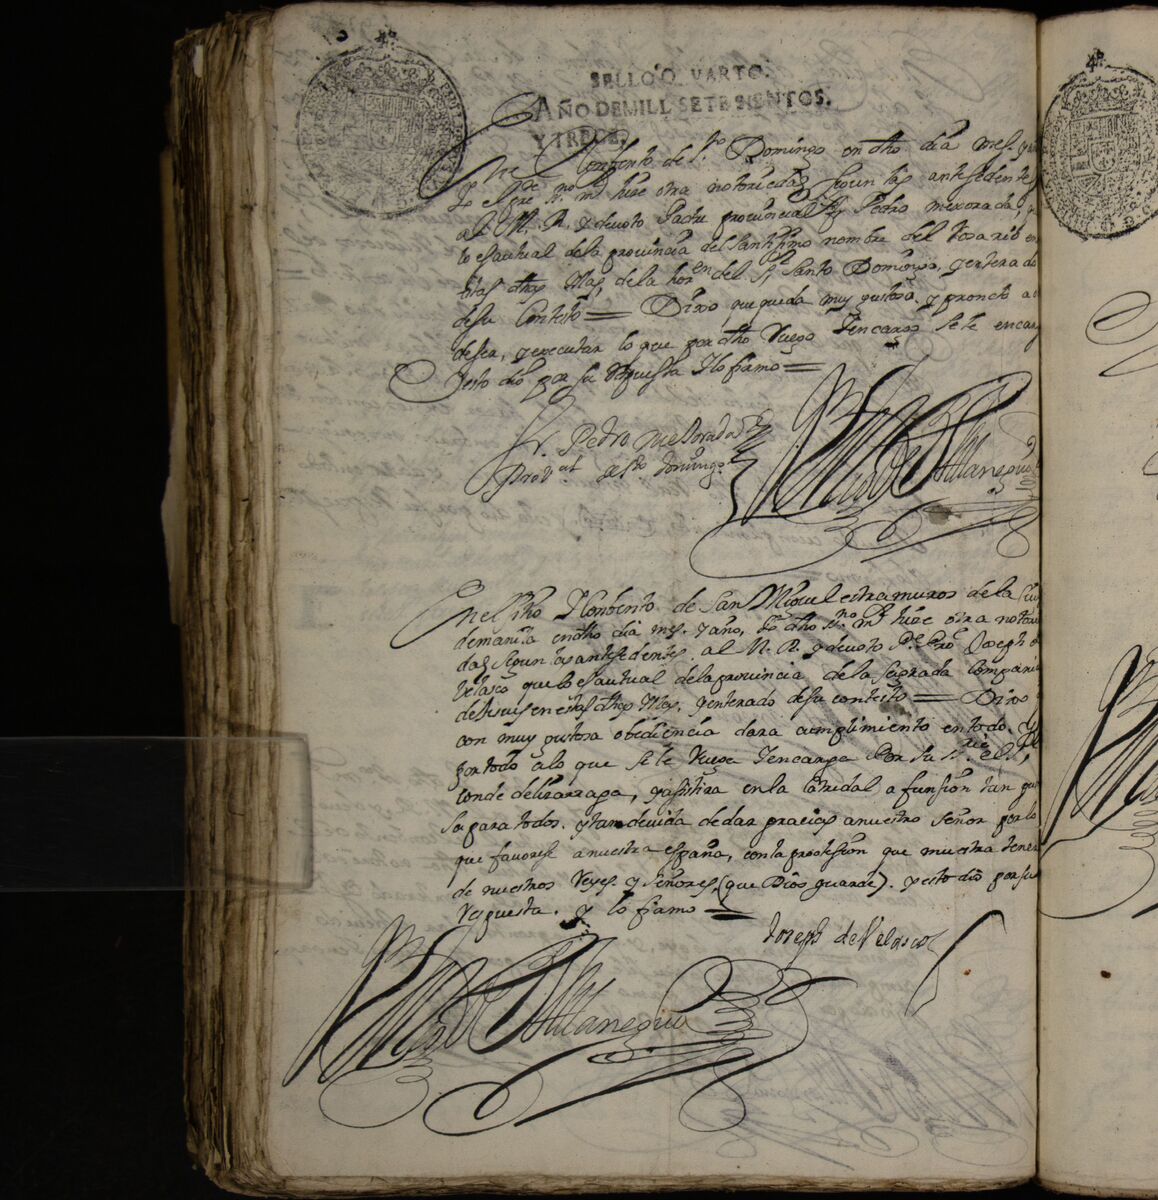 SELLO QVARTO.
AÑO DE MILL SETESIENTOS.
Y TRECE.
En el Conbento de Sto Domingo en dho dia mes y
Yo el presste nro mr hise otra notoriedad segun las antesedentes
al M. R. y devoto Padre provincial fr Pedro mexorada, q
lo es autual de la provincia del santissimo nombre del Rosario en
estas dhas Ylas, de la horen del Sr Santo Domingo, y enterado
de su Contesto = Dixo que queda muy gustoso y pronto a
deser, y executar lo que por dho Ruego Yencargo se le encar
y esto dio por su Respuesta Ylo firmo =
Fr. Pedro Mexorada
Proval de sto domingo
En el sitio Y Conbento de San Miguel estramuros de la Ciu
de manila en dho dia mes, y año, Yo dho nro mr hise otra notorie
dad segun las antesedentes, al M. R. y devoto Pe Pro Joseph de
Velasco que lo es autual de la provincia de la Sagrada Compañia
de Jesus en estas dhas Yslas, y enterado de su contesto = Dixo
con muy gustosa obediencia dara cumplimiento en todo, y
por todo a lo que se le Ruega Yencarga Por su Sria el Sr
Conde de lizarraga, y asistira en la Catredal a funsion tan gus
sa para todos. y tan devida de dar gracias a nuestro Señor por lo
que favorese a nuestra españa, con la protession que muestra tener
de nuestros Reyes y Señores, (que Dios guarde). y esto dio por su
Respuesta. y lo firmo =
Joseph de Velasco